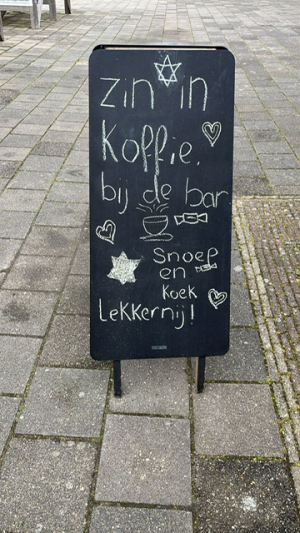 zin in
koffie.
bij de bar
Snoep
en
koek
Lekkernij!